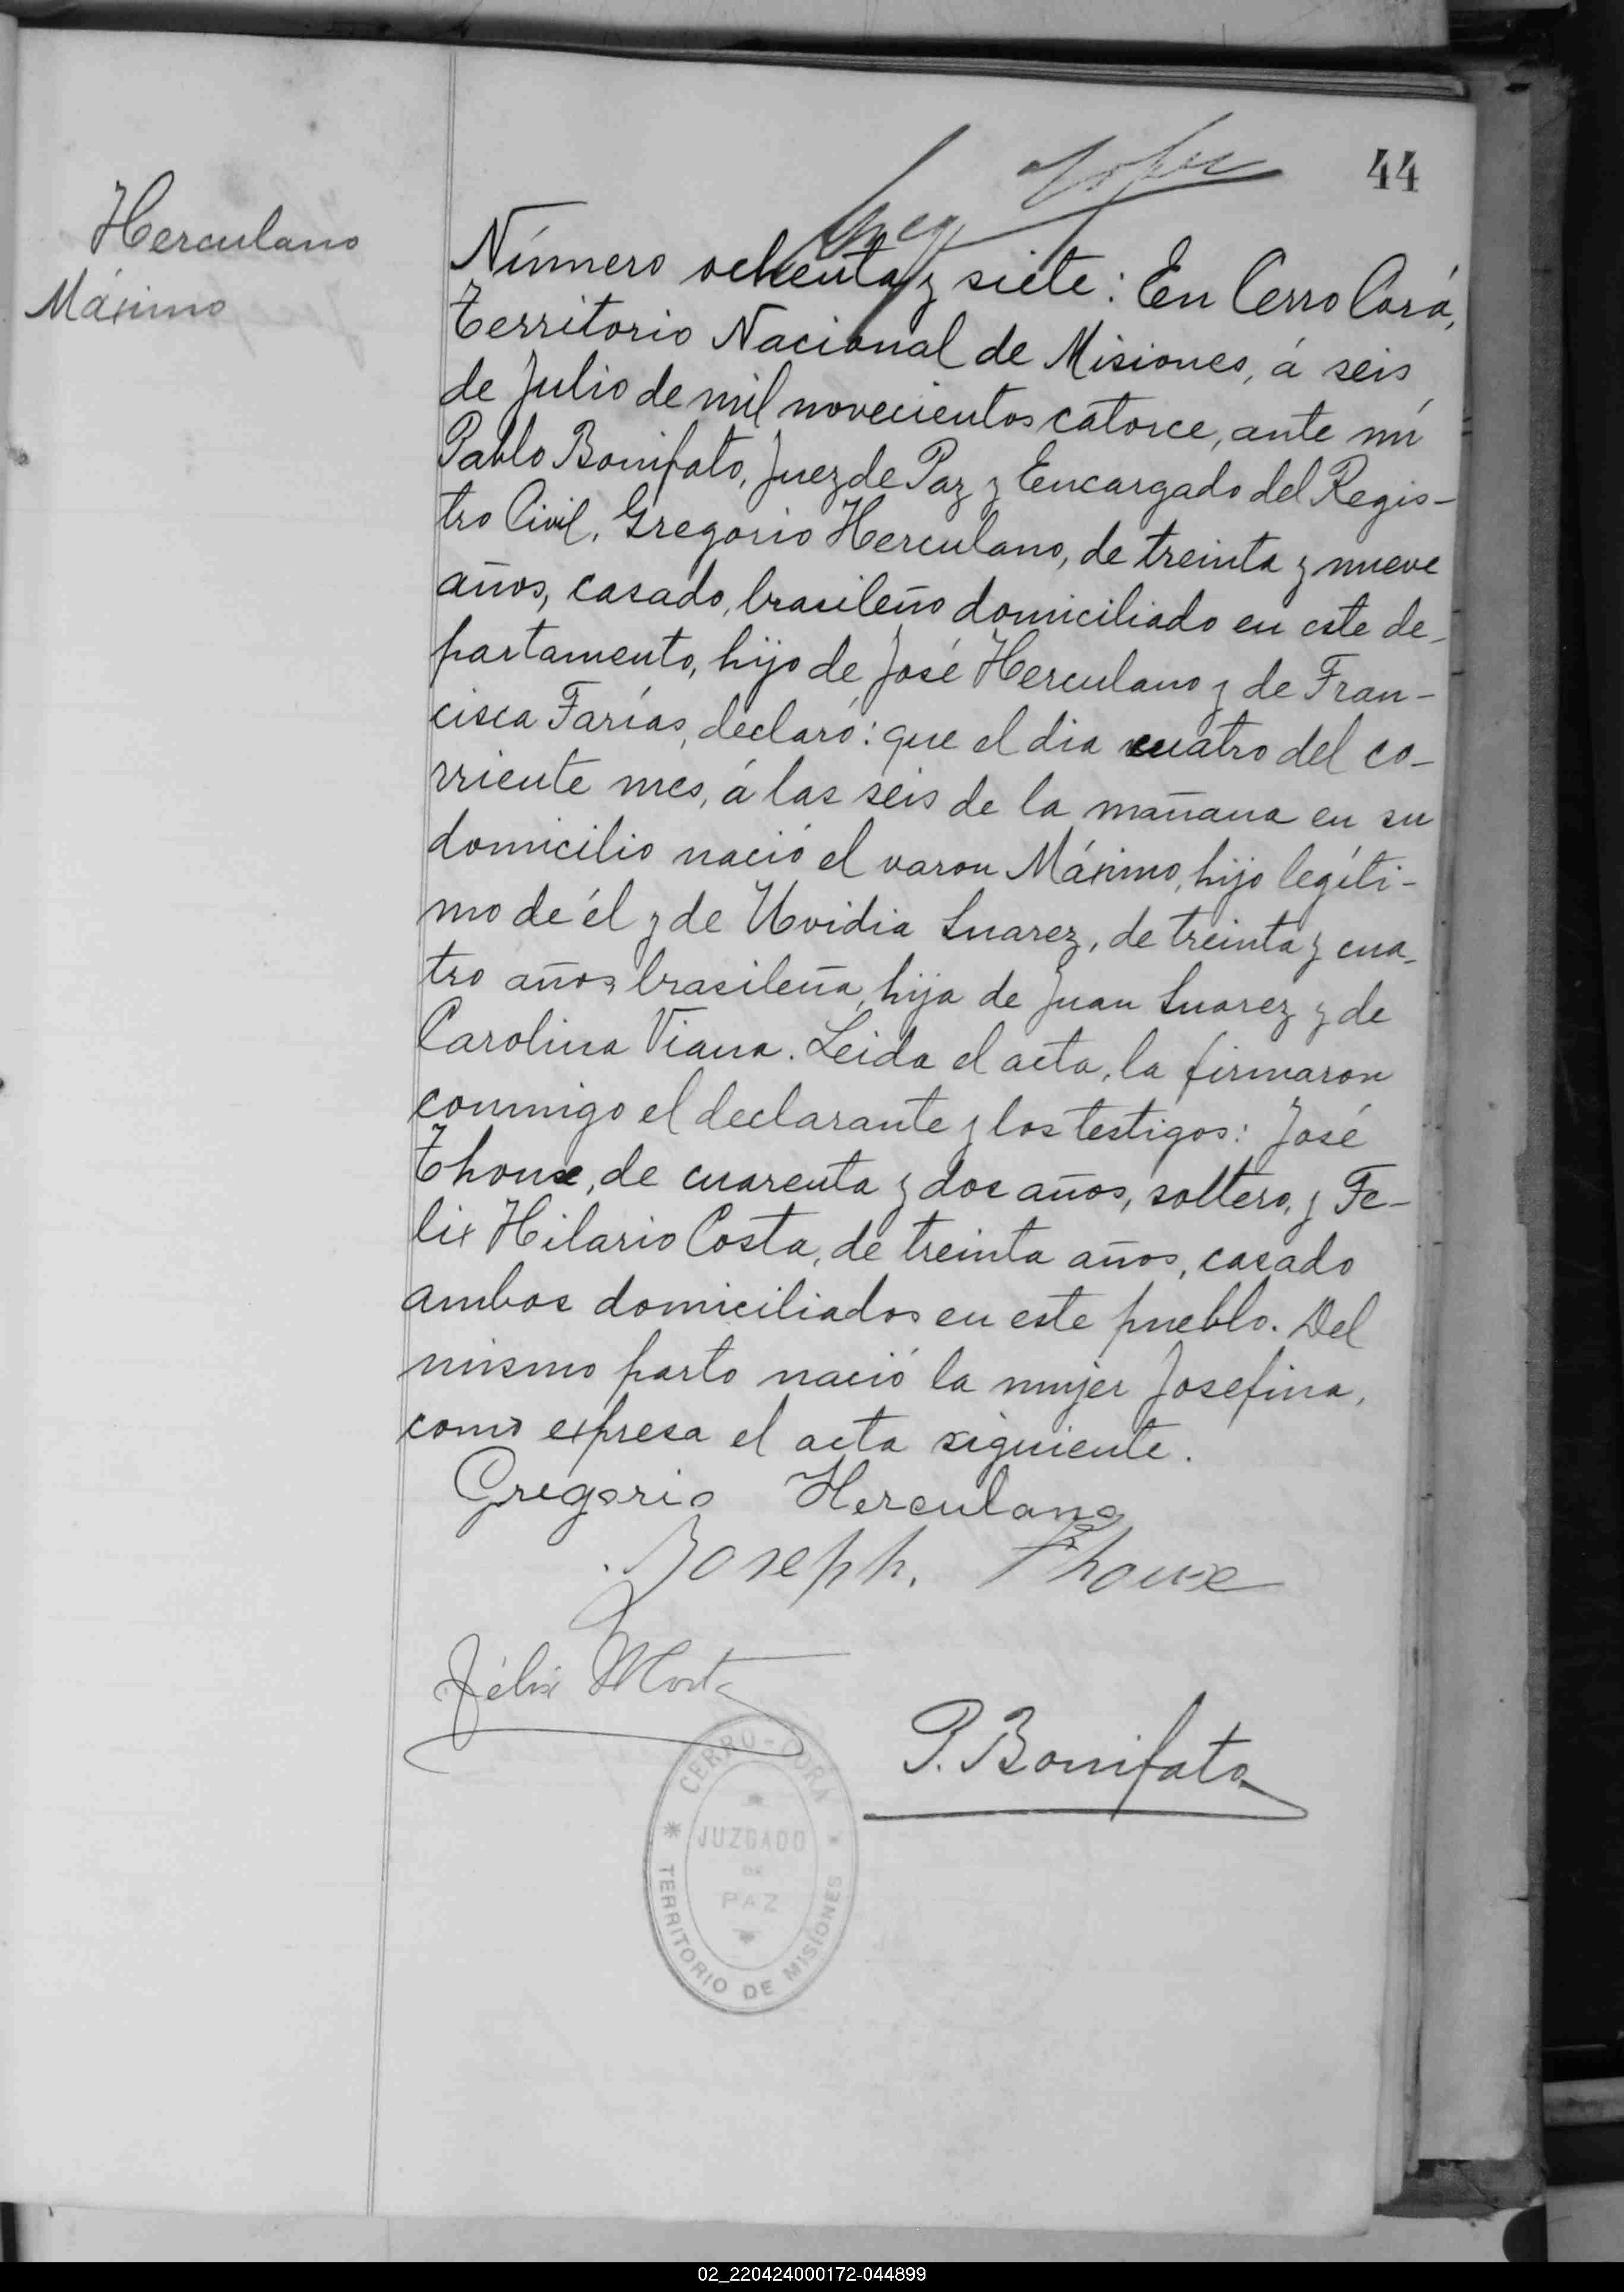 44
Herculano
Máximo
Número ochenta y siete: En Cerro Corá,
Territorio Nacional de Misiones, á seis
de Julio de mil novecientos catorce, ante mí
Pablo Bonifato, Juez de Paz y Encargado del Regis-
tro Civil, Gregorio Herculano, de treinta y nueve
años, casado, brasileño domiciliado en este de-
partamento, hijo de José Herculano y de Fran-
cisca Farías, declaró: que el dia cuatro del co-
rriente mes, á las seis de la mañana en su
domicilio nació el varon Máximo, hijo legíti-
mo de él y de Uvidia Suarez, de treinta y cua-
tro años, brasileña, hija de Juan Suarez y de
Carolina Viana. Leida el acta, la firmaron
conmigo el declarante y los testigos: José
Thoux, de cuarenta y dos años, soltero, y Fe-
lix Hilario Costa, de treinta años, casado
ambos domiciliados en este pueblo. Del
mismo parto nació la mujer Josefina,
como expresa el acta siguiente.
Gregorio Herculano
Joseph. Thoux
Félix
P. Bonifato
CERRO-CORÁ
JUZGADO
DE
PAZ
TERRITORIO DE MISIONES
02_220424000172-044899